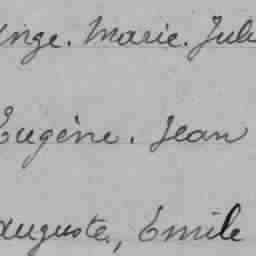 Ange. Marie. Jule
Eugène. Jean
Auguste, Emile